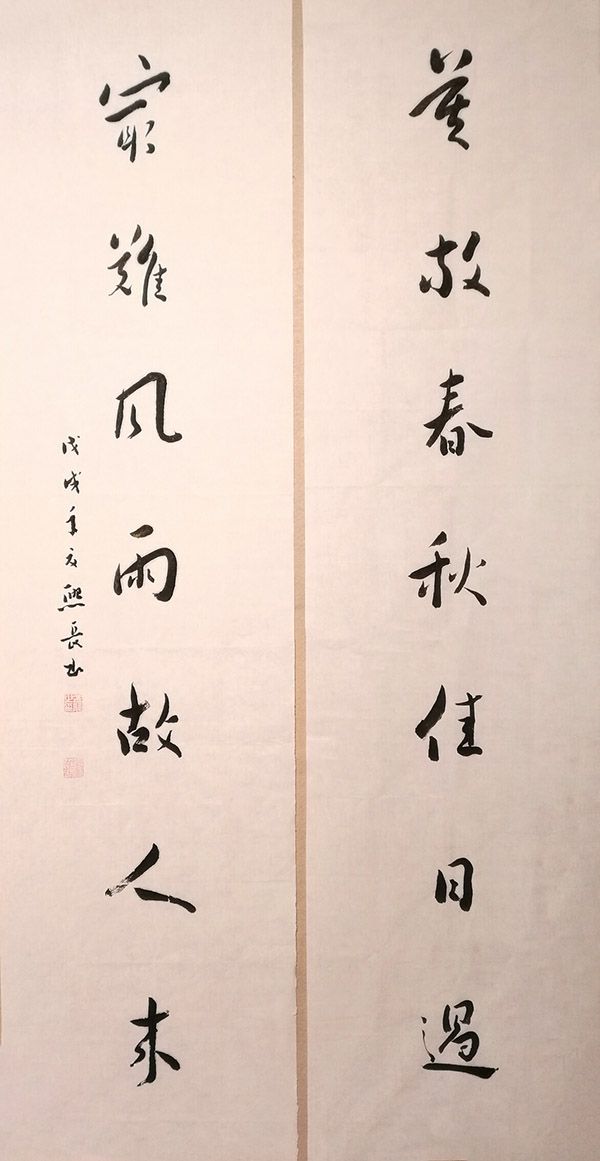 莫放春秋佳日過
最難风雨故人来
戊戌年夏熙長书